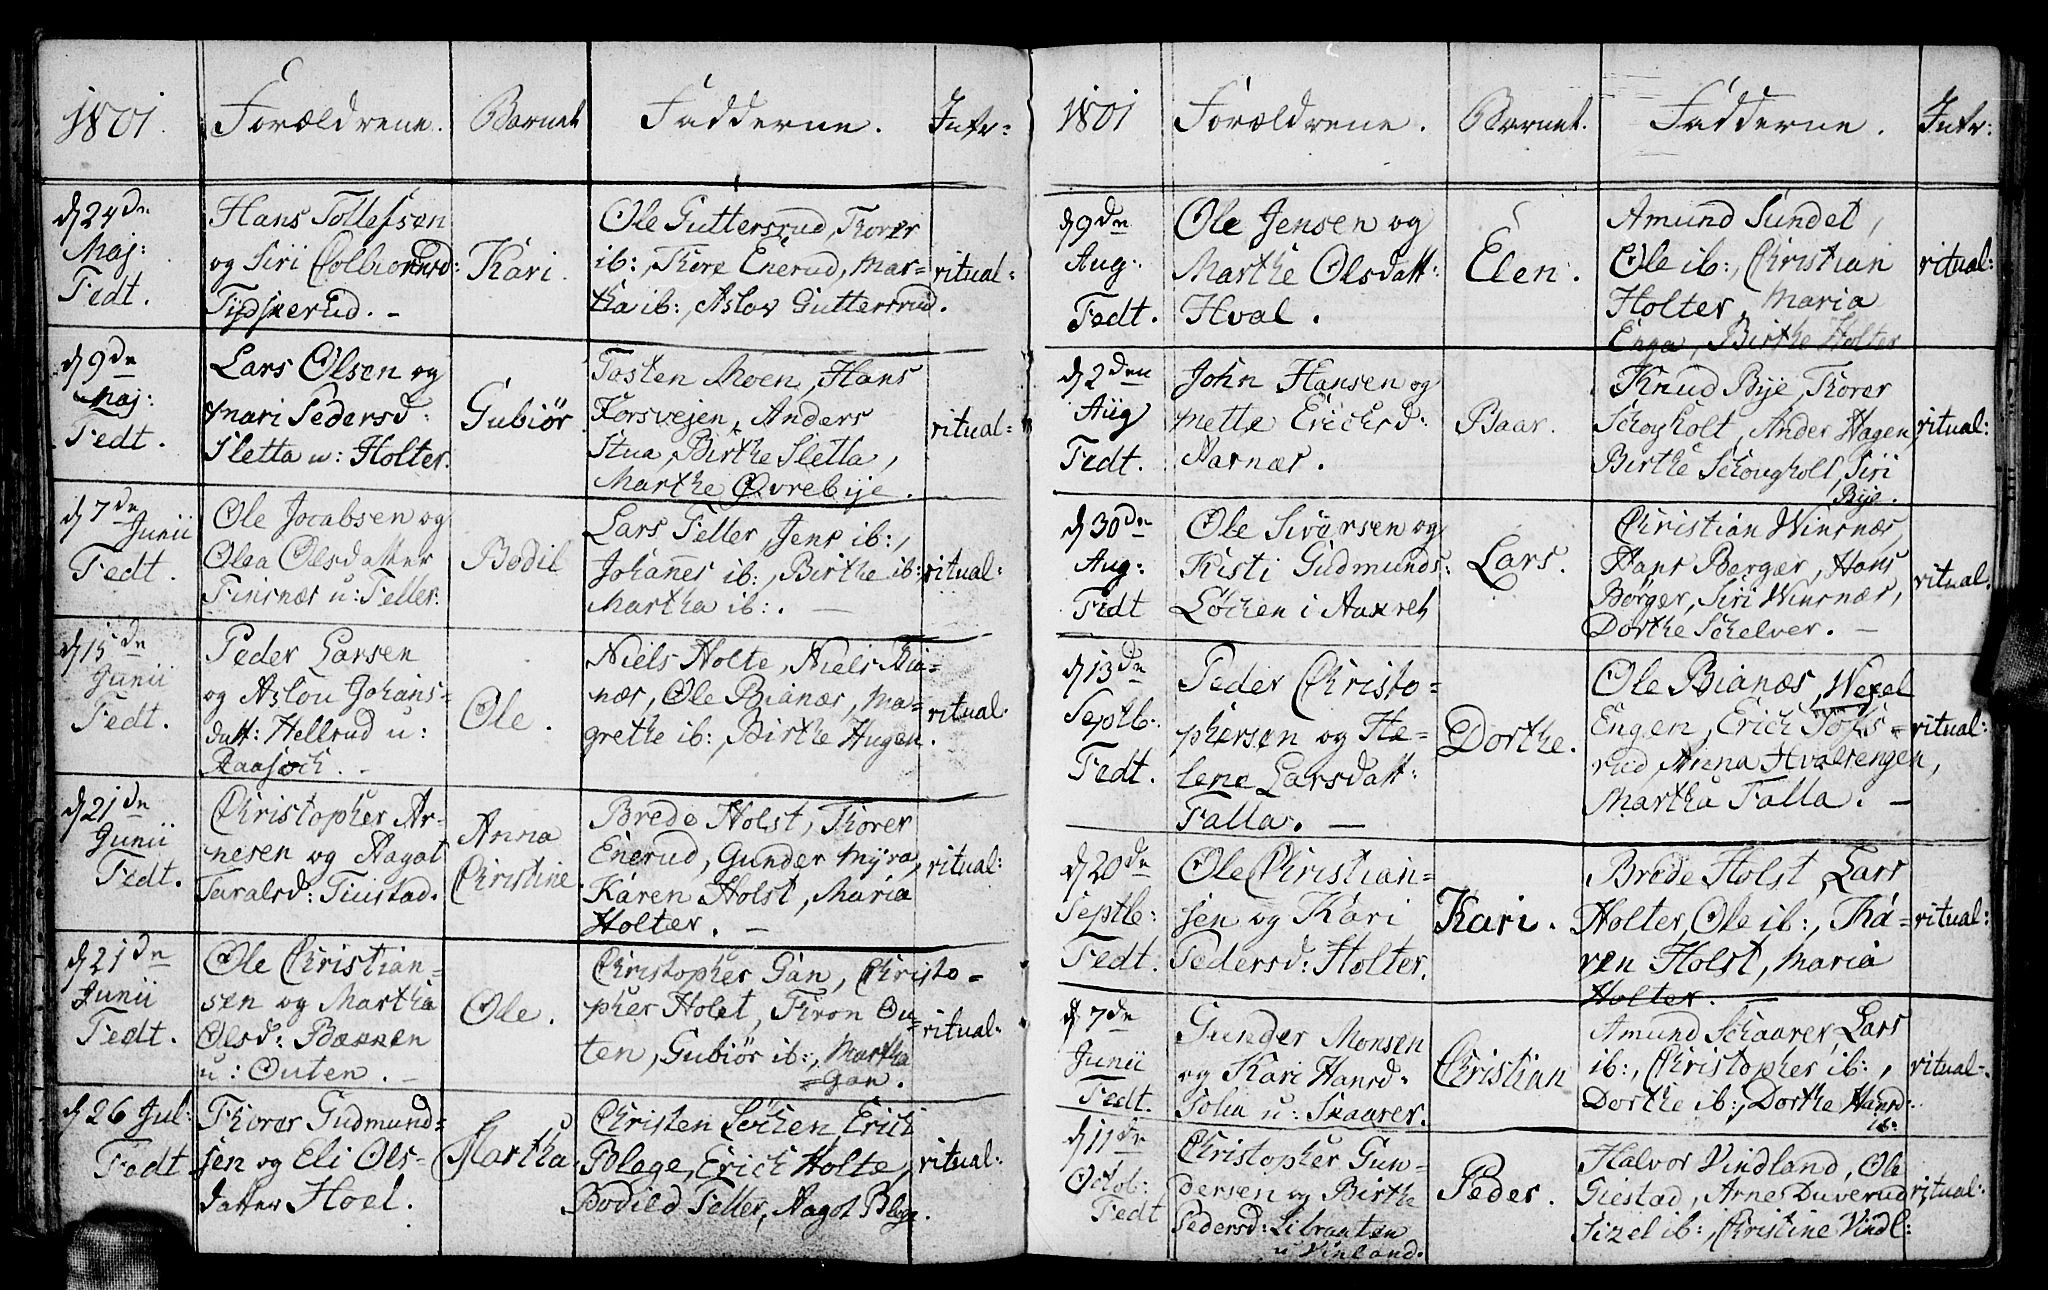 1801. Forældrene. Barnet Fadderne. Intr:
d 24de Maj: Fedt.
Hans Tollefsen
og Siri Colbiornsd:
Tydskerud. -
Kari.
Ole Guttersrud, Thorer
ib:, Thore Enerud, Mar-
tha ib:, Aslov Guttersrud.
ritual:
d 9de Maj: Fedt.
Lars Olsen og
Mari Pedersd:
Sletta u: Holter.
Gubiør
Tosten Moen, Hans
Korsvejen, Anders
Stua, Birthe Sletta,
Marthe Øvrebije.
ritual:
d 7de Junii Fedt.
Ole Jocabsen og
Olea Olsdatter
Finsnæs u: Feller.
Bodil
Lars Feller, Jens ib:,
Johannes ib:, Birthe ib:
Martha ib:. -
ritual:
d 15de Junii Fedt.
Peder Larsen
og Aslou Johans-
datt: Hellrud u:
Raasoch. -
Ole.
Niels Holte, Niels Bia-
nær, Ole Bianær, Ma-
grethe ib:, Birthe Hugen.
ritual:
d 21de Junii Fedt.
Christopher Ar-
nesen og Aagot
Taralsd: Tiustad.
Anna
Christine
Brede Holst, Thorer
Enerud, Gunder Myra,
Karen Holst, Maria
Holter. -
ritual:
d 21de Junii Fedt.
Ole Christian-
sen og Martha
Olsd: Bakken
u: Outen. -
Ole.
Christopher Gan, Christo-
pher Holst, Tiron Ou-
ten, Gubiør ib:, Martha
Gan.
ritual:
d 26 Jul: Fedt
Thorer Gudmund-
sen og Eli Ols-
datter Hoel.
Martha
Christen Løchen, Erich
Blege, Erich Holte,
Bodild Feller, Aagot Blege.
ritual:
1801 Forældrene. Barnet. Fadderne. Intr:
d 9de Aug: Fedt.
Ole Jensen og
Marthe Olsdatt:
Hval.
Elen.
Amund Sundet,
Ole ib:, Christian
Holter, Maria
Enga, Birthe Holter
ritual:
d 2den Aug Fedt.
John Hansen og
Mette Erichsd:
Aarnæs.
Baar.
Knud Bye, Thorer
Schougholt, Ander Hagen,
Birthe Schougholt, Siri
Bije.
ritual:
d 30de Aug: Fedt
Ole Siversen og
Kisti Gudmunds:
Løchen i Aasreh
Lars.
Christian Winsnær,
Hans Berger, Hans
Børger, Siri Winsnær,
Dorthe Schelver. -
ritual.
d 13de Septb: Fedt.
Peder Christo-
phersen og He-
lene Larsdatt:
Falla. -
Dorthe.
Ole Bianæs, Wexel
Engen, Erich Tofs-
rud, Anna Hvalsengen,
Martha Falla. -
ritual:
d 20de Septb: Fedt.
Ole Christian-
sen og Kari
Pedersd: Holter.
Kari.
Brede Holst, Lars
Holter, Ole ib:, Ka-
ren Holst, Maria
Holter. -
ritual:
d 7de Junii Fedt.
Gunder Monsen
og Kari Hansd:
Solia u: Skaarer.
Christian
Amund Schaarer, Lars
ib:, Christopher ib:,
Dorthe ib:, Dorthe Hansd:
ib:
ritual-.
d 11de Octob: Fedt
Christopher Gun-
dersen og Birthe
Pedersd: Libraaten
u Vinland.
Peder.
Halvor Vindland, Ole
Giestad, Arne Duverud,
Sizel ib:, Christine Vindl:
ritual: